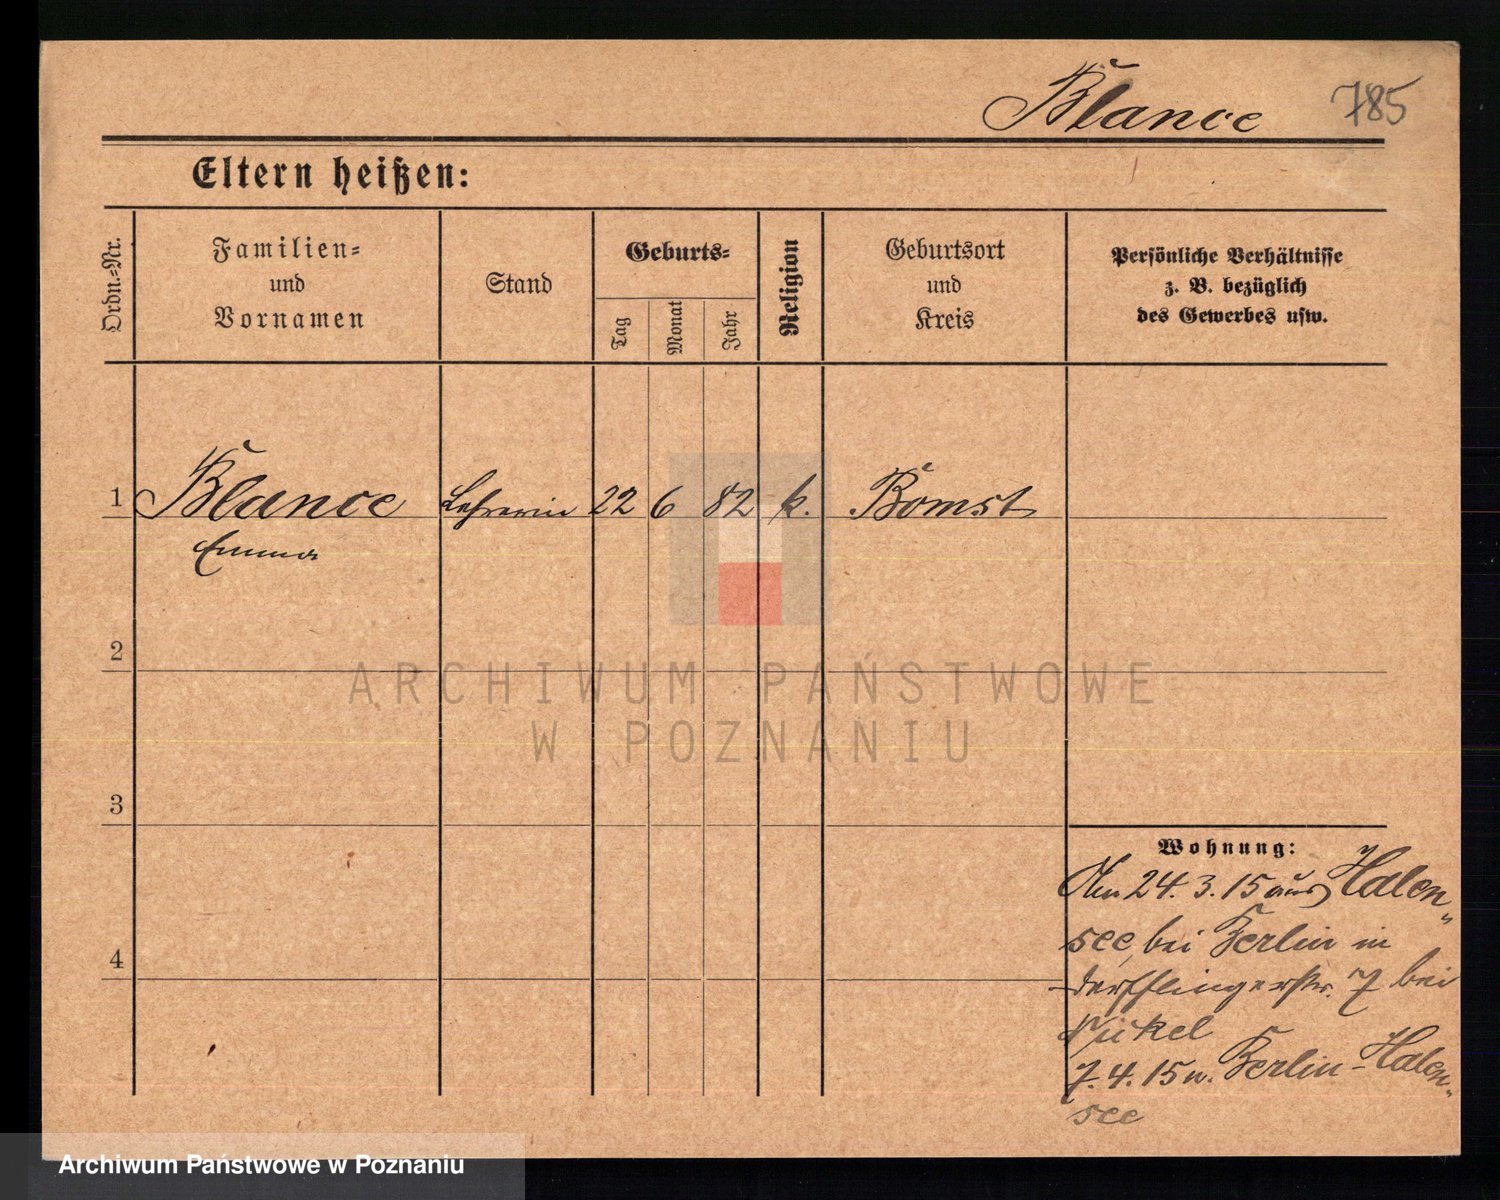 Blance 785
Eltern heißen:
Ordn.=Nr.
Familien=
und
Vornamen
Stand
Geburts=
Tag
Monat
Jahr
Religion
Geburtsort
und
Kreis
Persönliche Verhältnisse
z. B. bezüglich
des Gewerbes usw.
1 Blance Lehrerin 22 6 82 k. Bomst
Emma
2
3
4
Wohnung:
Am 24. 3. 15 aus Halen„
see, bei Berlin in
Derfflingerstr. 7 bei
7. 4. 15 n. Berlin-Halen„
see
ARCHIWUM PAŃSTWOWE
W POZNANIU
Archiwum Państwowe w Poznaniu